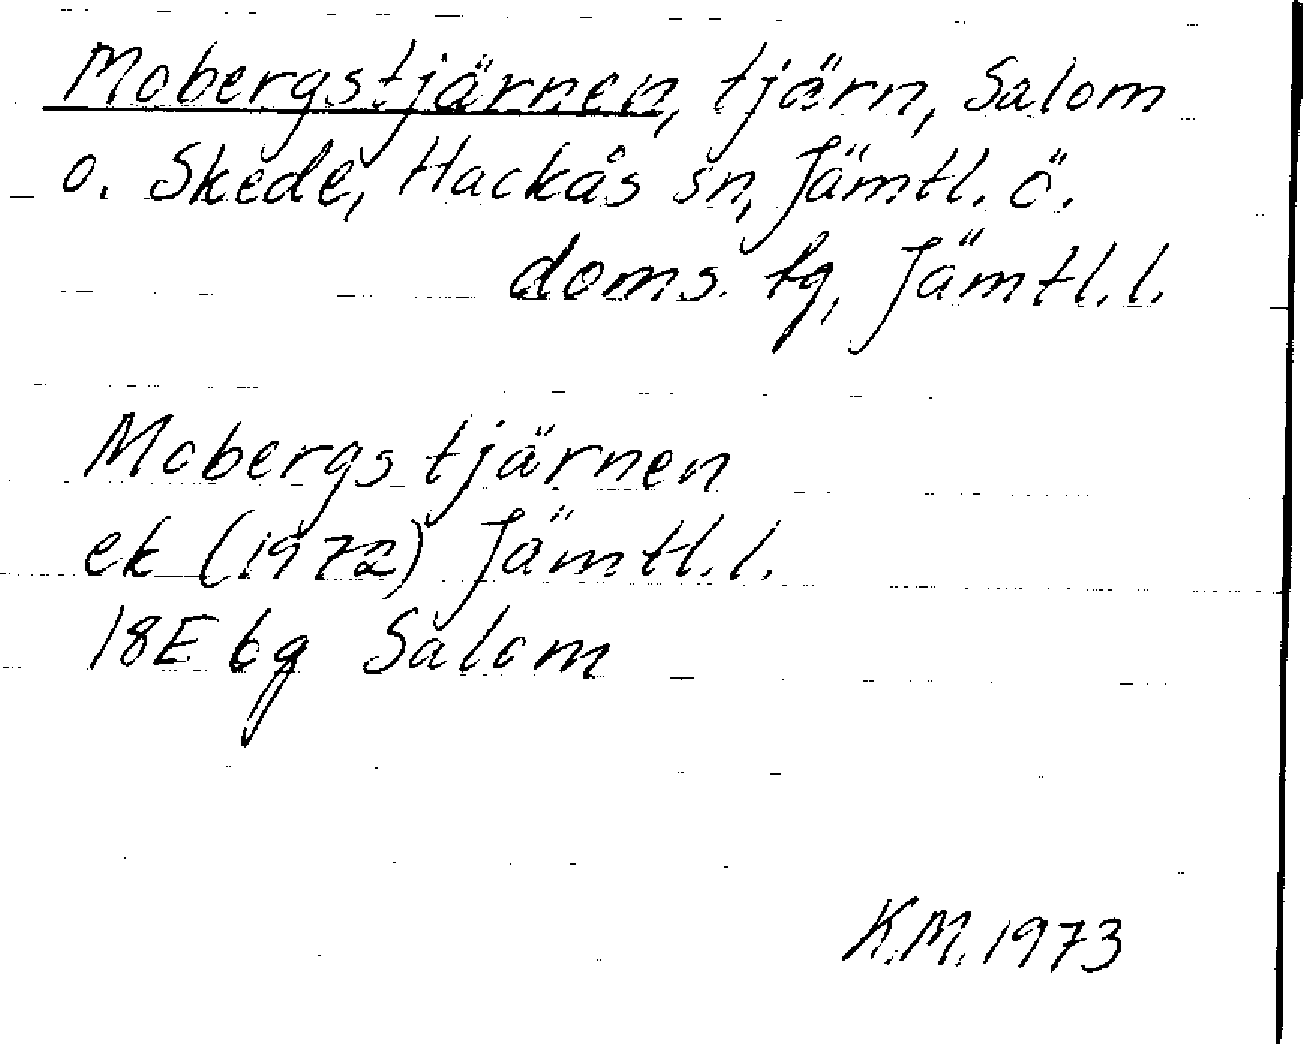 Mobergstjärnen, tjärn, Salom
o. Skede, Hackås sn, Jämtl. ö.
doms. tg, Jämtl. l.
Mobergstjärnen
ek (1972) Jämtl. l.
18E 6g Salom
K.M. 1973